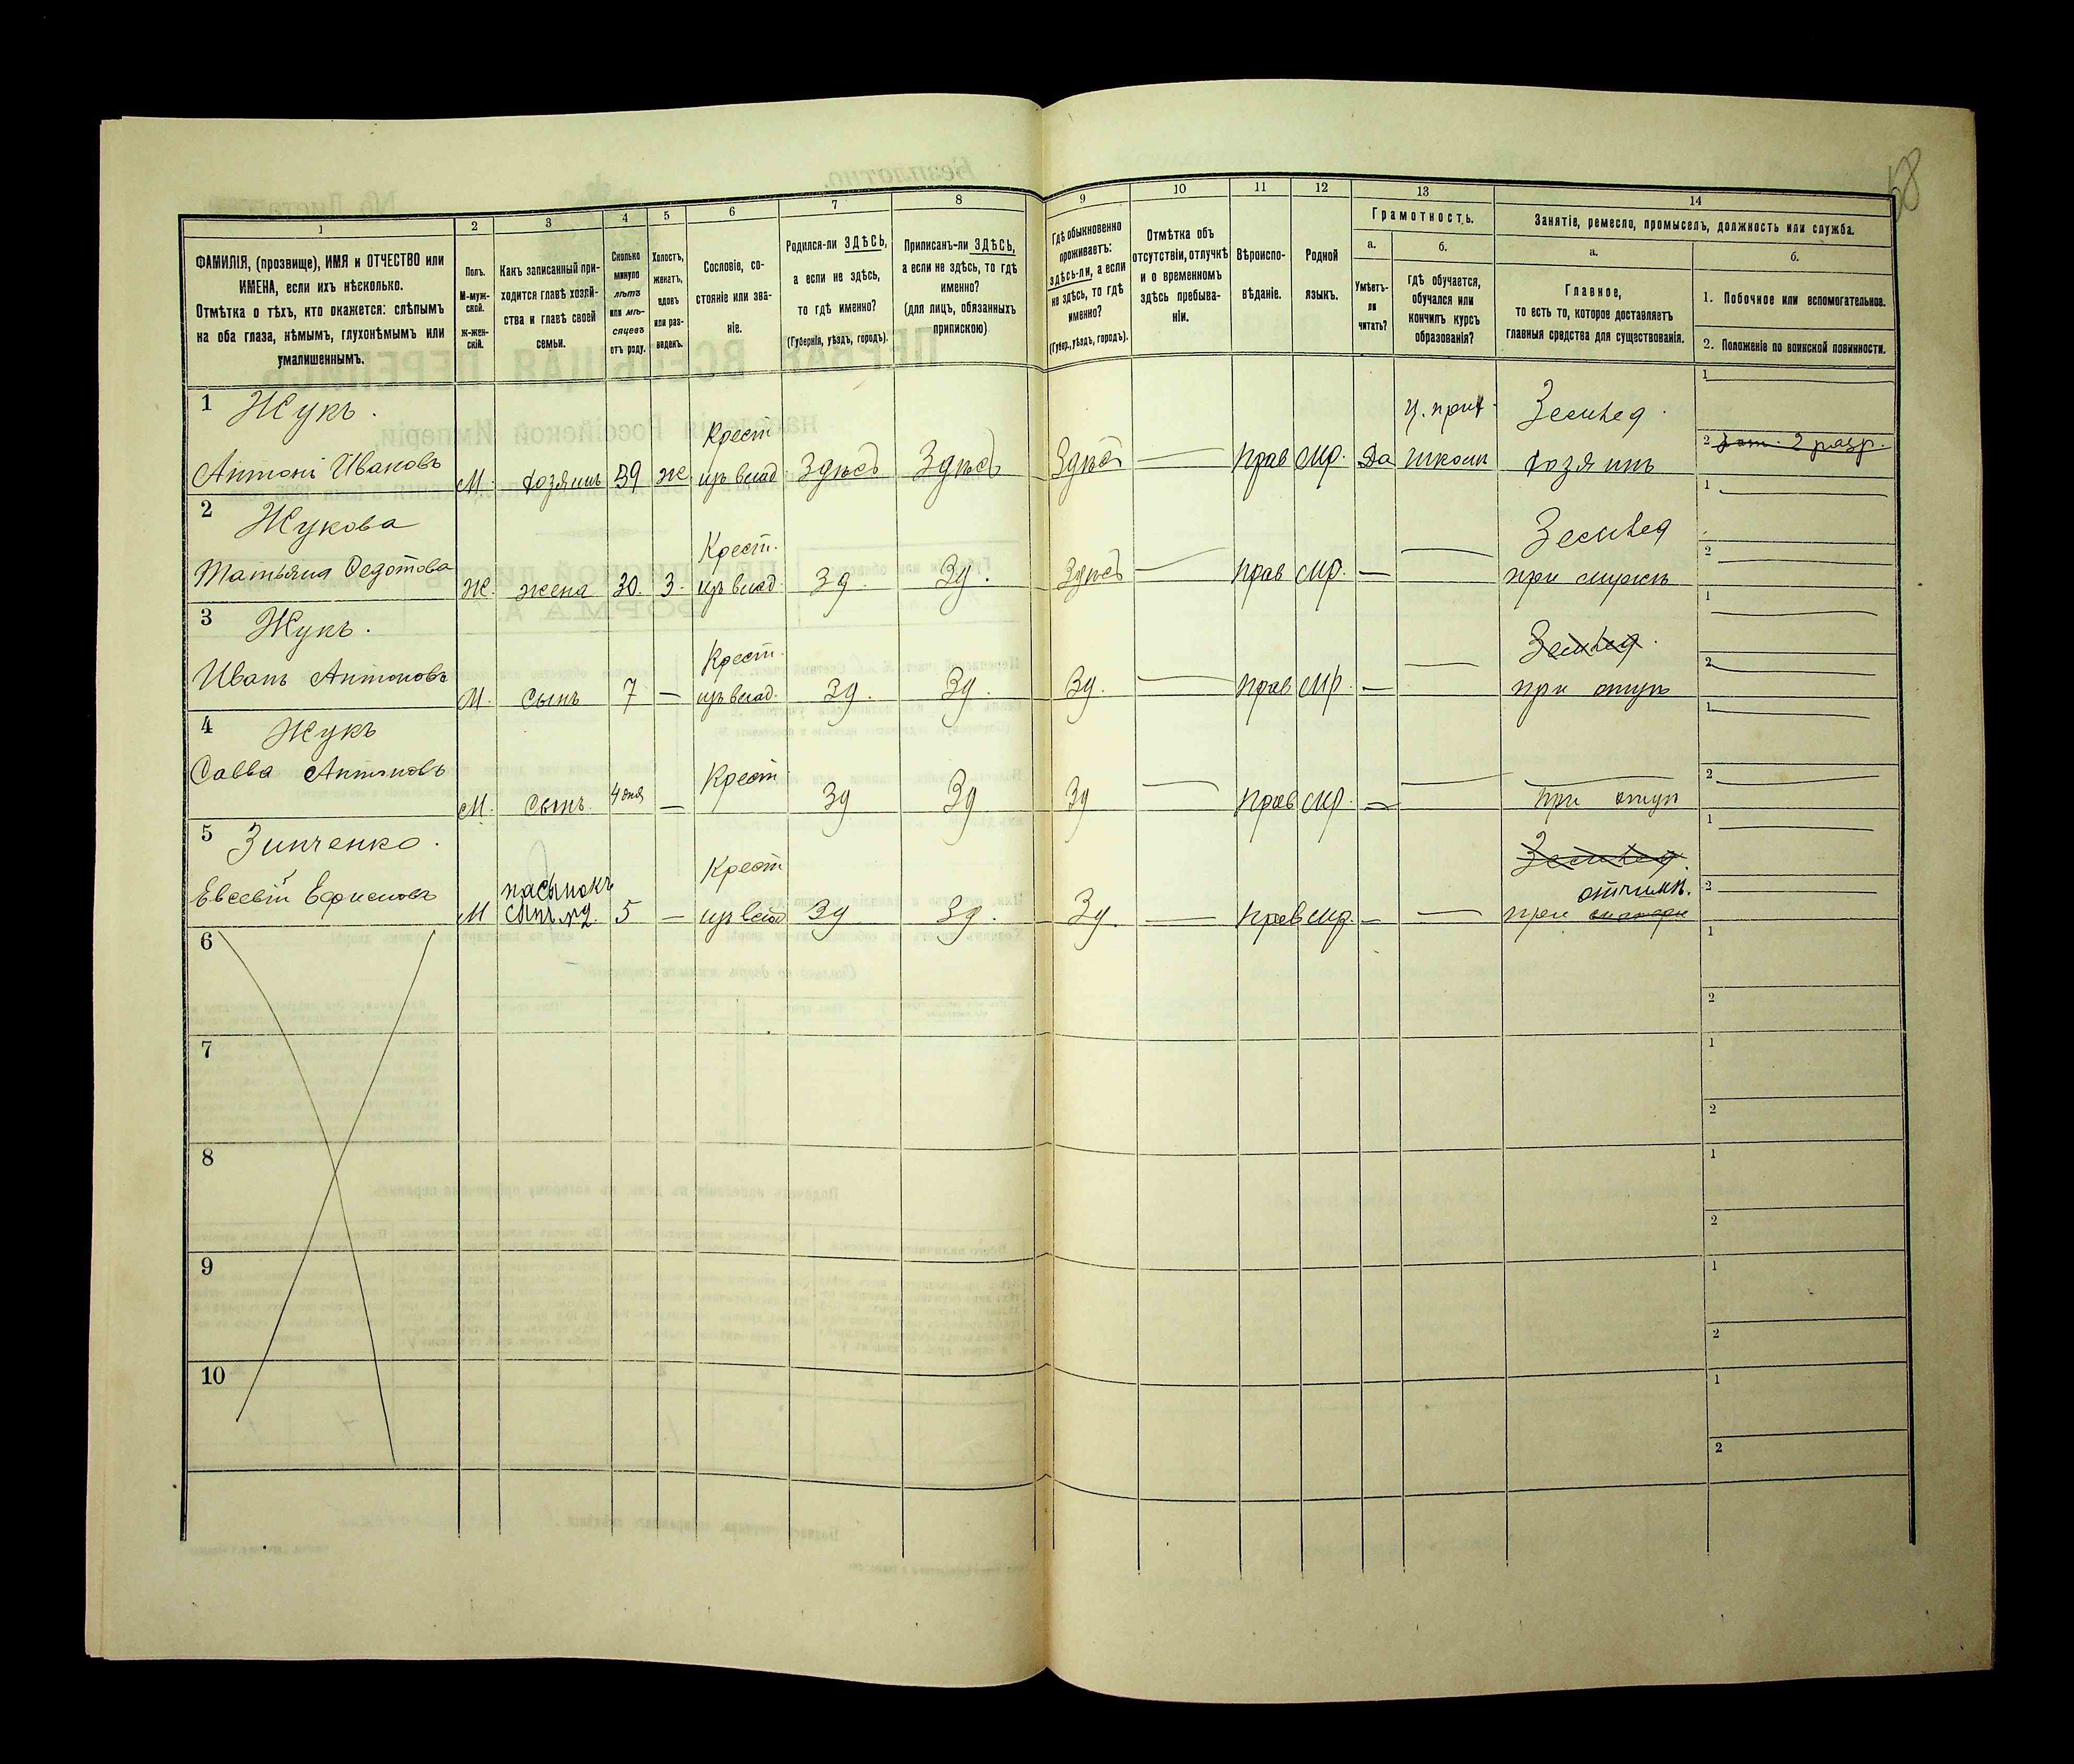 68
1 2 3 4 5 6 7 8 9 10 11 12 13 14
ФАМИЛІЯ, (прозвище), ИМЯ и ОТЧЕСТВО или
ИМЕНА, если ихъ нѣсколько.
Отмѣтка о тѣхъ, кто окажется: слѣпымъ
на оба глаза, нѣмымъ, глухонѣмымъ или
умалишеннымъ.
Полъ.
М-муж-
ской.
Ж-жен-
скій.
Какъ записанный при-
ходится главѣ хозяй-
ства и главѣ своей
семьи.
Сколько
минуло
лѣтъ
или мѣ-
сяцевъ
отъ роду.
Холостъ,
женатъ,
вдовъ
или раз-
веденъ.
Сословіе, со-
стояніе или зва-
ніе.
Родился-ли ЗДѢСЬ,
а если не здѣсь,
то гдѣ именно?
(Губернія, уѣздъ, городъ).
Приписанъ-ли ЗДѢСЬ,
а если не здѣсь, то гдѣ
именно?
(для лицъ, обязанныхъ
припискою)
Гдѣ обыкновенно
проживаетъ:
здѣсь-ли, а если
не здѣсь, то гдѣ
именно?
(Губер., уѣздъ, городъ).
Отмѣтка объ
отсутствіи, отлучкѣ
и о временномъ
здѣсь пребыва-
ніи.
Вѣроиспо-
вѣданіе.
Родной
языкъ.
Грамотность.
а.
Умѣетъ-
ли
читать?
б.
гдѣ обучается,
обучался или
кончилъ курсъ
образованія?
Занятіе, ремесло, промыселъ, должность или служба.
а.
Главное,
то есть то, которое доставляетъ
главныя средства для существованія.
б.
1. Побочное или вспомогательное.
2. Положеніе по воинской повинности.
1 Жукъ.
Антоні Ивановъ М. хозяинъ 39 ж. Крест изъ влад. Здѣсь Здѣсь Здѣсь — прав мр. Да ц. прих школи Землед. хозяинъ
1 —
2 2 разр.
2 Жукова
Татьяна Федотова Ж. жена 30. З. Крест. изъ влад. Зд. Зд. Здѣсь — прав мр. — — Землед при мужѣ
1 —
2 —
3 Жукъ.
Иванъ Антоновъ М. Сынъ 7 — Крест. изъ влад. Зд. Зд. Зд. — прав мр. — — Землед. при отцѣ
1 —
2 —
4 Жукъ
Савва Антоновъ М. Сынъ. 4 дня — Крест Зд Зд Зд — прав мр. — — при отцѣ
1 —
2 —
5 Зинченко.
Евсевій Ефимовъ М пасынокъ 5 — Крест изъ влад Зд Зд. Зд. — прав мр. — — Землед. при отчимѣ.
1 —
2 —
6
1
2
7
1
2
8
1
2
9
1
2
10
1
2